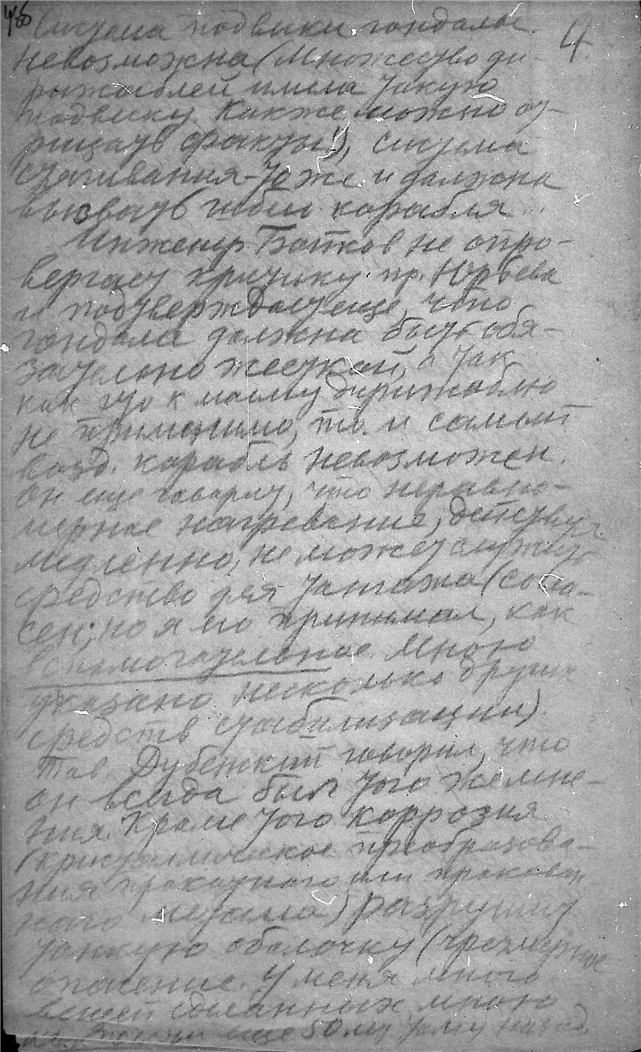 Система подвески гондолы
4
невозможна (множество ди-
рижаблей имела такую
подвеску. Как же можно от-
рицать факты!), система
стягивания - тоже и должна
вызвать гибель корабля...
Инженер Бойков не опро-
вергает критику пр. Юрьева
и подтверждает еще, что
гондола должна быть обя-
зательно жесткой, а так
как это к моему дирижаблю
не применимо, то и самый
возд. корабль невозможен.
Он еще говорит, что неравно-
мерное нагревание, действуя
медленно, не может служить
средство для тангажа (согла-
сен; но я его принимал, как
вспомогательное. Мною
указано несколько других
средств стабилизации)
Тов. Дубенский говорил, что
он всегда был того же мне-
ния. Кроме того коррозия
(кристаллическое преобразова-
ния прокатного или прокован
ного металла) разрушит
тонкую оболочку (чрезмерное
опасение. У меня много
вещей сделанных мною
еще 50 лет тому назад,